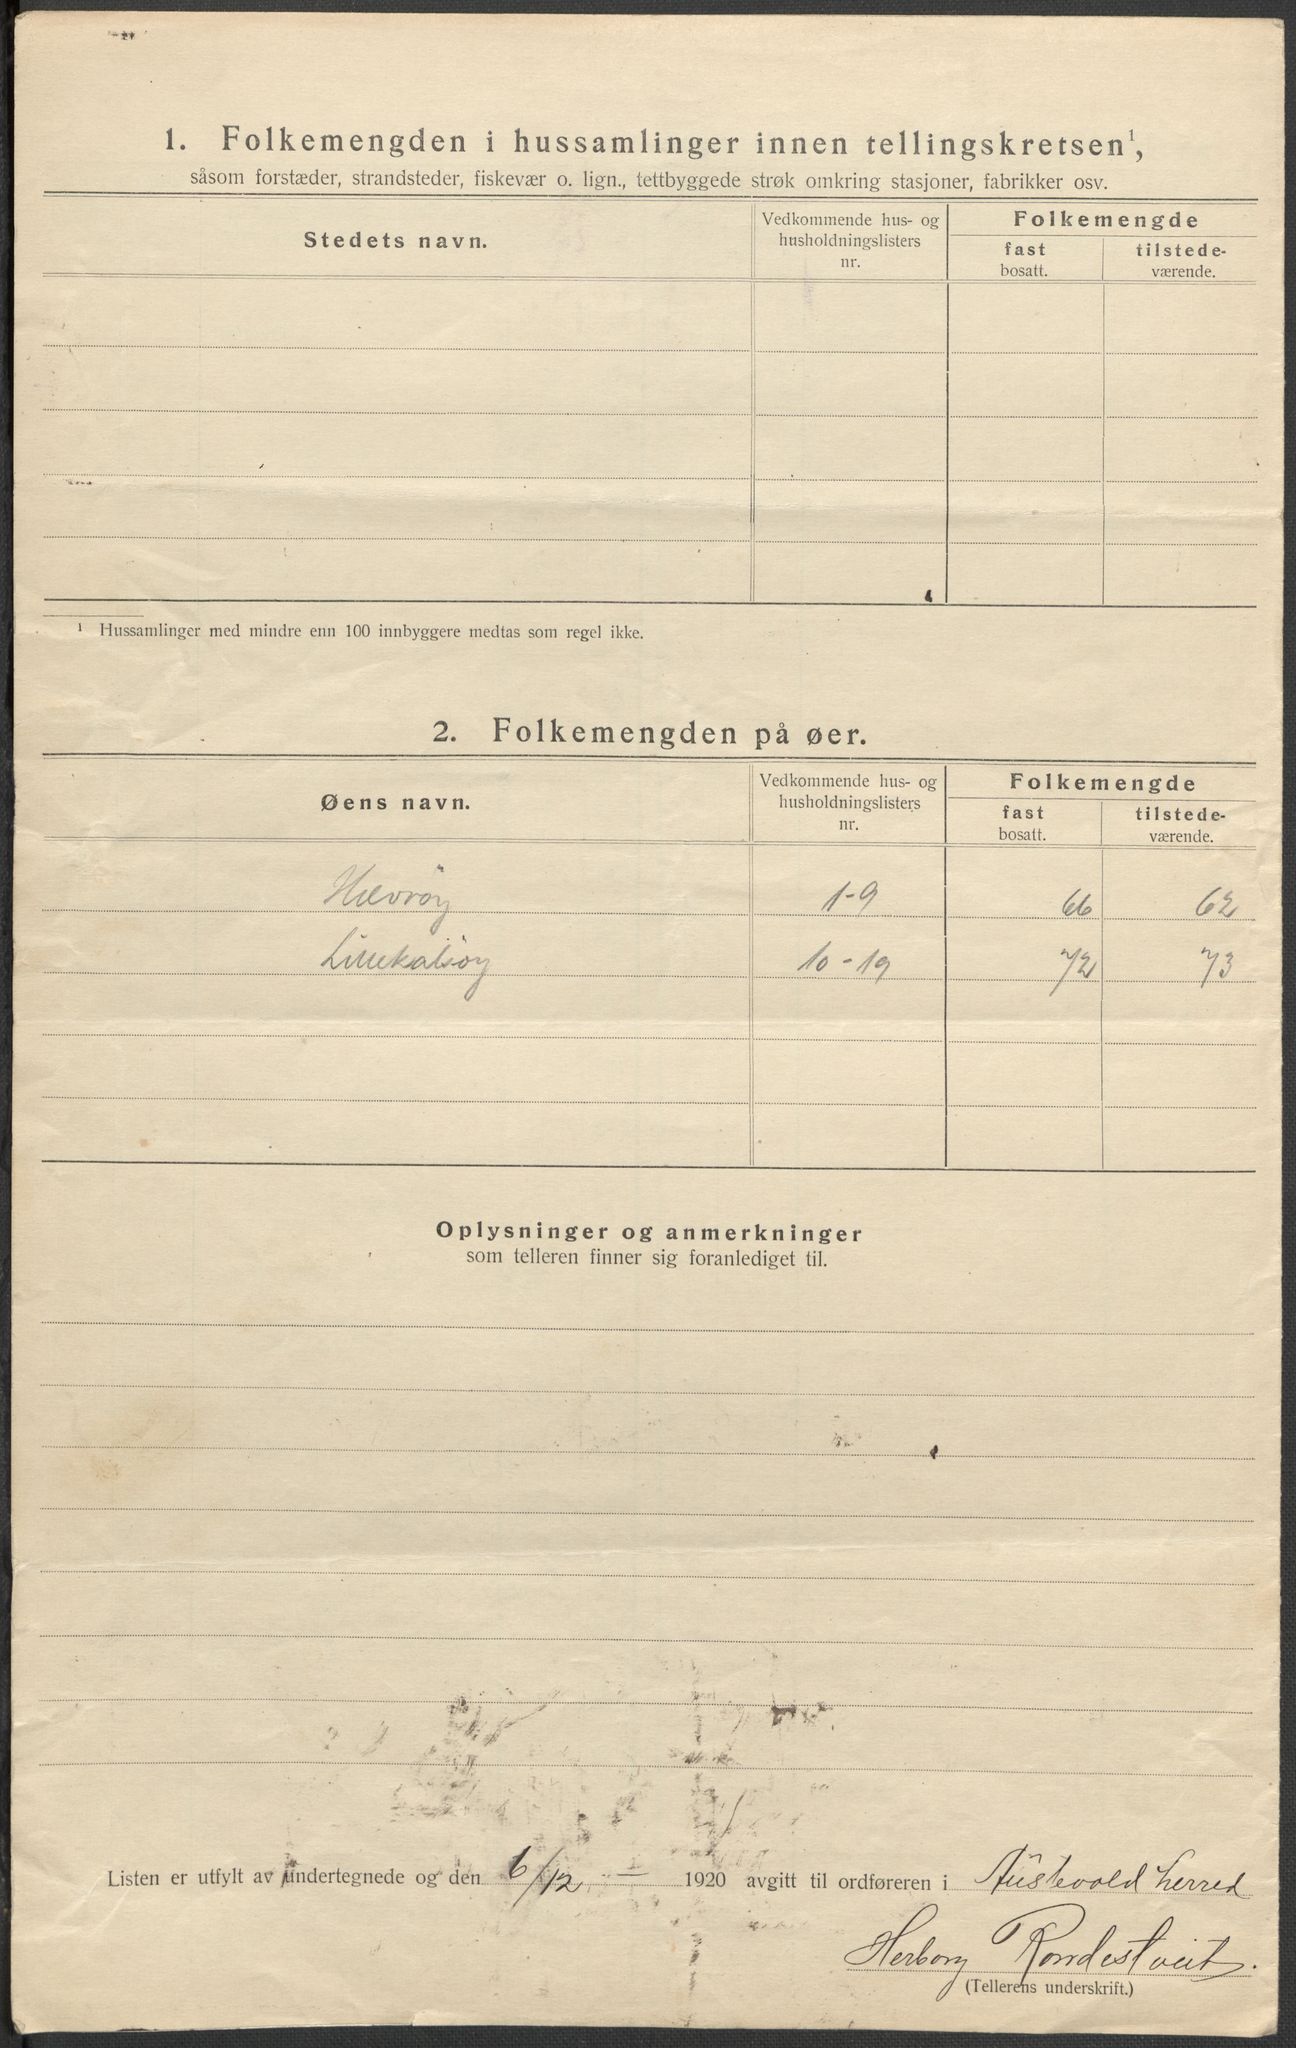 1. Folkemengden i hussamlinger innen tellingskretsen¹,
såsom forstæder, strandsteder, fiskevær o. lign., tettbyggede strøk omkring stasjoner, fabrikker osv.
Stedets navn.
Vedkommende hus- og
husholdningslisters
nr.
Folkemengde
fast
bosatt.
tilstede-
værende.
¹ Hussamlinger med mindre enn 100 innbyggere medtas som regel ikke.
2. Folkemengden på øer.
Øens navn.
Vedkommende hus- og
husholdningslisters
nr.
Folkemengde
fast
bosatt.
tilstede-
værende.
Hevrøy 1-9 66 62
Lillekalsøy 10-19 72 73
Oplysninger og anmerkninger
som telleren finner sig foranlediget til.
Listen er utfylt av undertegnede og den 6/12 1920 avgitt til ordføreren i Austevold herred
Herborg Rondestveit.
(Tellerens underskrift.)